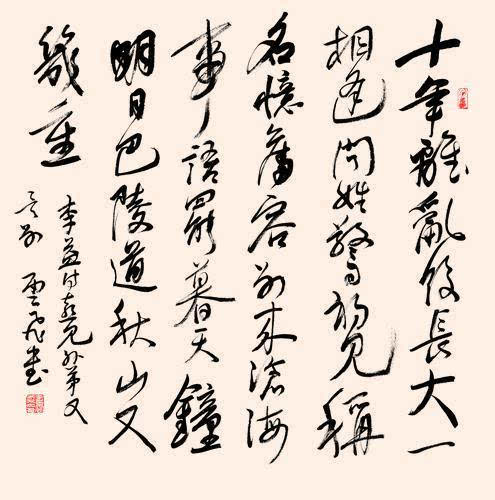 十年離亂後長大一
相逢問姓驚初見稱
名憶舊容別來滄海
事語罷暮天鐘
明日巴陵道秋山又
幾重
李益詩喜見外弟又
言別 雲飛書